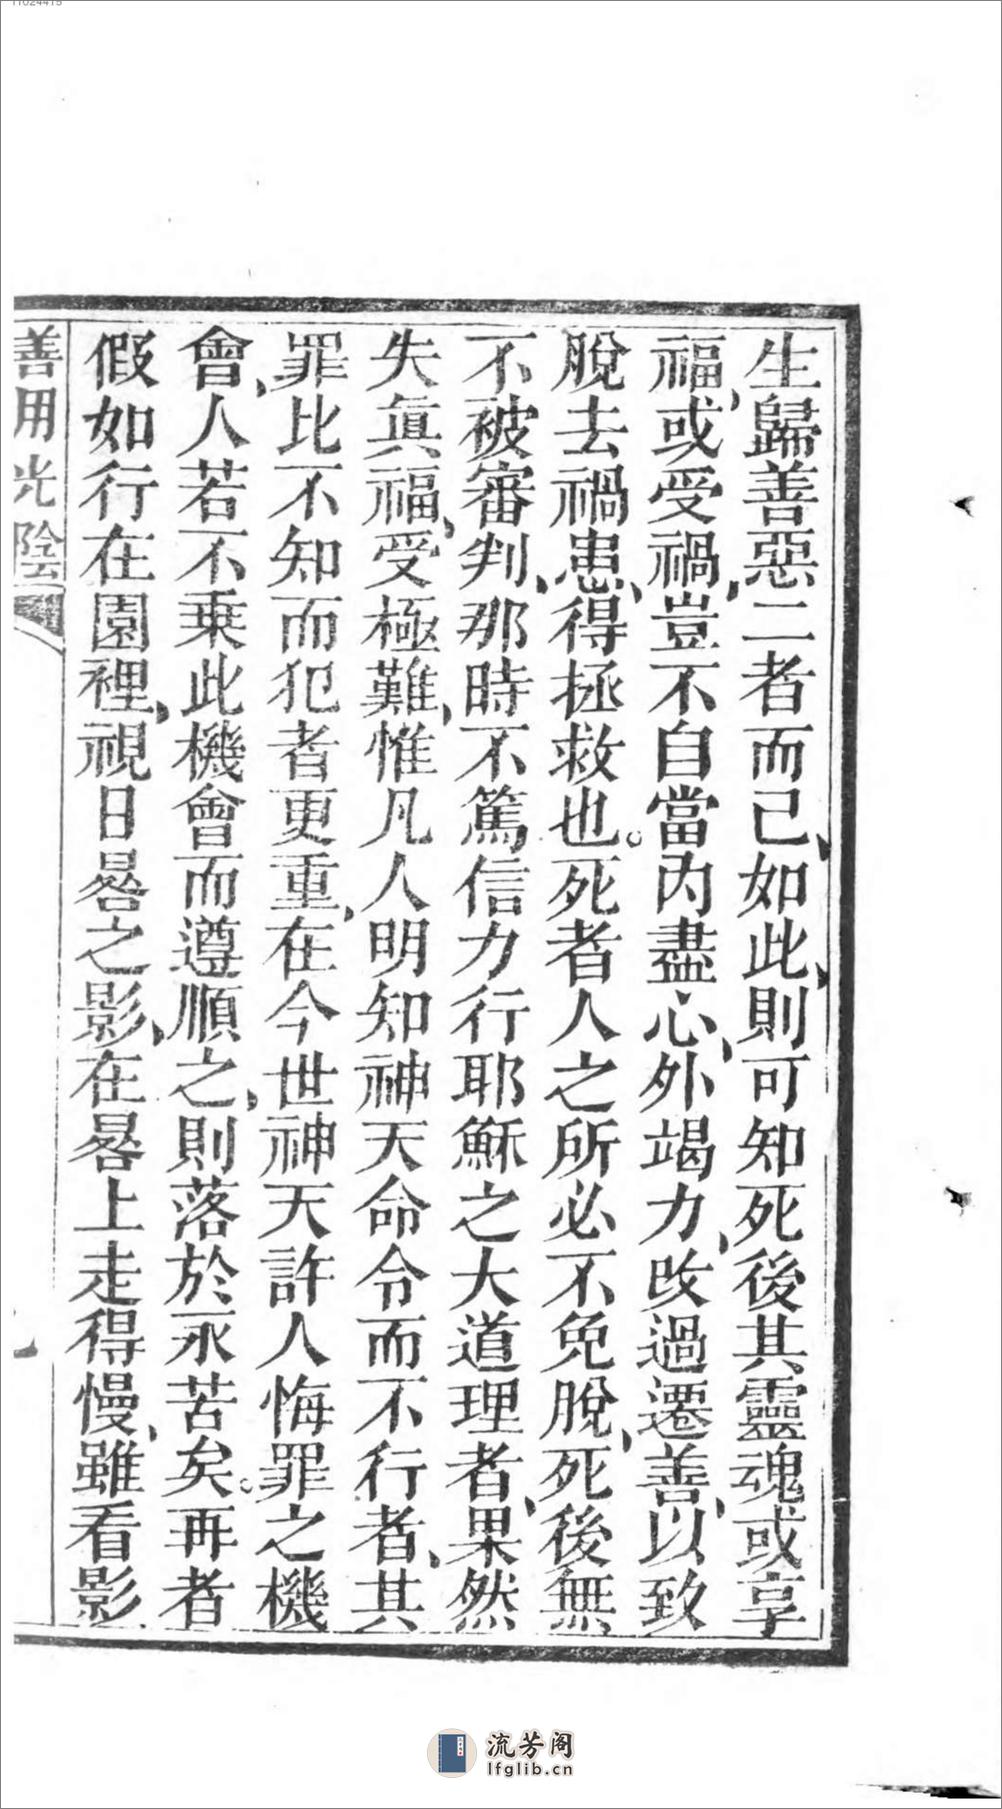 11024415
生歸善惡二者而己、如此、則可知死後其靈魂或享
福、或受禍、豈不自當內盡心、外竭力、改過遷善、以致
脫去禍患、得拯救也。死者人之所必不免脫、死後無
不被審判、那時不篤信力行耶穌之大道理者、果然
失眞福、受極難、惟凡人明知神天命令而不行者、其
罪比不知而犯者更重、在今世神天許人悔罪之機
會、人若不乘此機會而遵順之、則落於永苦矣。再者
假如行在園裡、視日晷之影、在晷上走得慢、雖看影
善用光陰
流芳阁
lfglib.cn